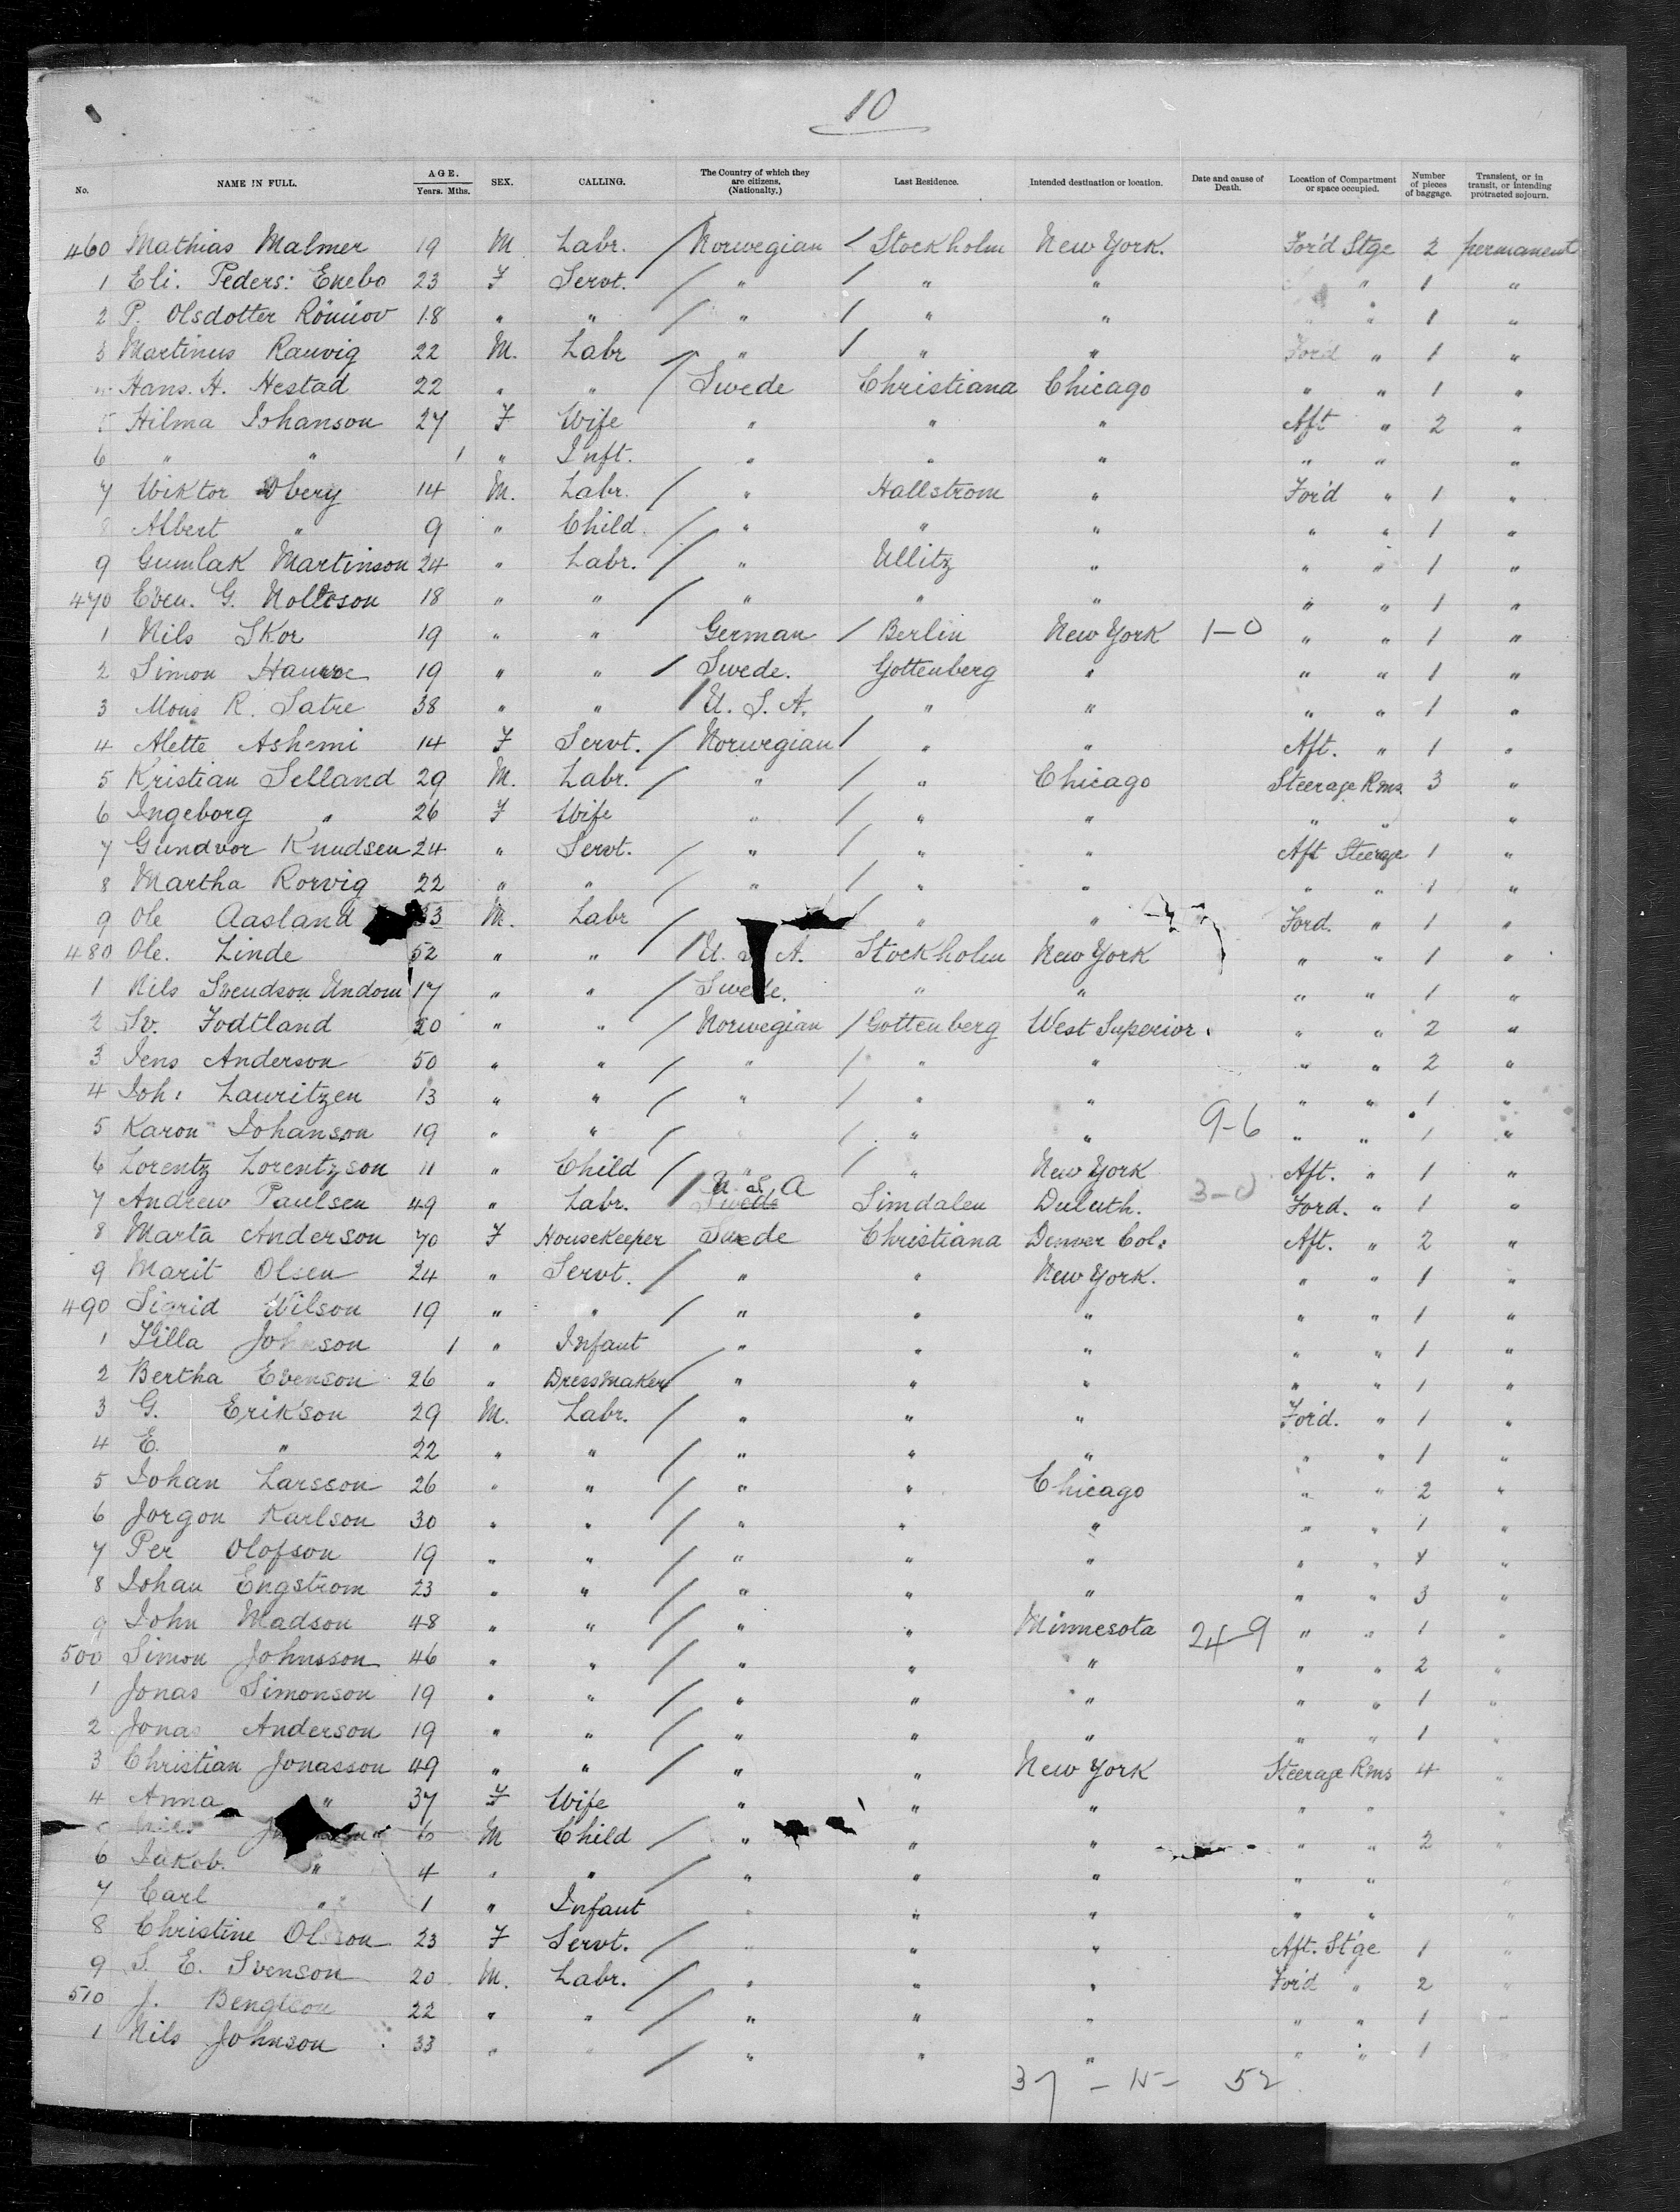 10
No. NAME IN FULL. AGE. Years. Mths. SEX. CALLING. The Country of which they are citizens. (Nationalty.) Last Residence. Intended destination or location. Date and cause of Death. Location of Compartment or space occupied. Number of pieces of baggage. Transient, or in transit, or intending protracted sojourn.
460 Mathias Malmer 19 M Labr. / Norwegian / Stockholm New York. For'd Stge 2 permanent
1 Eli. Peders: Enebo 23 F Servt. / " / " " " 1 "
2 P. Olsdotter 18 " " / " / " " " 1 "
3 Martinus Rauvig 22 M. Labr / " / " " For'd " 1 "
Hans. H. Hestad 22 " " / Swede Christiana Chicago " " 1 "
5 Hilma Johanson 27 F Wife " " " Aft " 2 "
6 " " 1 " Inft. " " " " " "
7 Wiktor 14 M. Labr. / " Hallstrom " For'd " 1 "
8 Albert " 9 " Child. / " " " " " 1 "
9 Gumlak Martinson 24 " Labr. / " Ullitz " " " 1 "
470 Even. G. 18 " " / " " " " " 1 "
1 Nils Skor 19 " " German / Berlin New York 1-0 " " 1 "
2 Simon 19 " " / Swede. Gottenberg " " " 1 "
3 Mons R. Satre 38 " " / U. S. A. " " " " 1 "
4 Alette Ashemi 14 F Servt. / Norwegian / " " Aft. " 1 "
5 Kristian Selland 29 M. Labr. / " / " Chicago Steerage Rms. 3 "
6 Ingeborg " 26 F Wife " / " " " " "
7 Gundvor Knudsen 24 " Servt. / " / " " Aft Steerage 1 "
8 Martha Rorvig 22 " " / " / " " " " 1 "
9 Ole Aasland 33 M. Labr / / " " Ford. " 1 "
480 Ole. Linde 52 " " / U. S. A. Stockholm New York " " 1 "
1 Nils Svendson Undom 17 " " / Swede. " " " " 1 "
2 Sv. Fodtland 20 " " / Norwegian / Gottenberg West Superior. " " 2 "
3 Jens Anderson 50 " " / " / " " " " 2 "
4 Joh: Lauritzen 13 " " / " / " " " " 1 "
5 Karon Johanson 19 " " / / " " 9-6 " " 1 "
6 Lorentz Lorentzson 11 " Child / " / " New York Aft. " 1 "
7 Andrew Paulsen 49 " Labr. / Swede U. S. A Simdalen Duluth. 3-0 Ford. " 1 "
8 Marta Anderson 70 F Housekeeper Swede Christiana Denver Col: Aft. " 2 "
9 Marit Olsen 24 " Servt. / " " New York. " " 1 "
490 Sigrid Wilson 19 " " / " " " " " 1 "
1 Tilla Johnson 1 " Infant " " " " " 1 "
2 Bertha Evenson 26 " Dressmaker / " " " " " 1 "
3 G. Erikson 29 M. Labr. / " " " For'd. " 1 "
4 E. " 22 " " / " " " " " 1 "
5 Johan Larsson 26 " " / " " Chicago " " 2 "
6 Jorgon Karlson 30 " " / " " " " " 1 "
7 Per Olofson 19 " " / " " " " " "
8 Johan Engstrom 23 " " / " " " " " 3 "
9 John Madson 48 " " / " " Minnesota 24-9 " " 1 "
500 Simon Johnsson 46 " " / " " " " " 2 "
1 Jonas Simonson 19 " " / " " " " " 1 "
2 Jonas Anderson 19 " " / " " " " " 1 "
3 Christian Jonasson 49 " " / " " New York Steerage Rms 4 "
4 Anna " 37 F Wife " " " " " "
6 M Child / " " " " " 2 "
6 Jakob. " 4 " " / " " " " " "
7 Carl " 1 " Infant " " " " " "
8 Christine Olsson 23 F Servt. / " " " Aft. St'ge 1 "
9 S. E. Svenson 20 M. Labr. / " " " For'd " 2 "
510 J. Bengtson 22 " " / " " " " " 1 "
1 Nils Johnson 33 " " / " " " " " 1 "
37 - 15 - 52